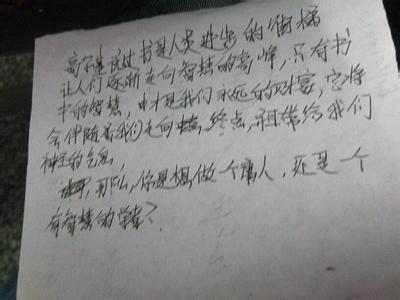 高尔基说过书是人类进步的阶梯
让人们逐渐走向智慧的高峰,只有书
中的智慧,才是我们永远的财富,它将
会伴随着我们走向终点,且带给我们
神圣的气息
那么,你是想做一个庸人,还是一个
有智慧的学者?